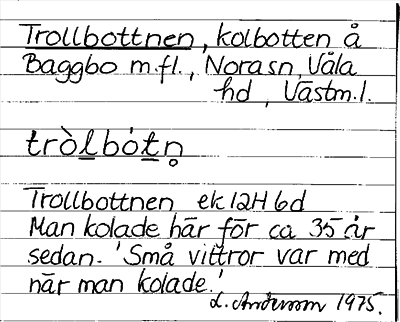 Trollbottnen, kolbotten å
Baggbo m.fl., Nora sn, Våla
hd, Västm.l.
tròl̲bȯt̲n̥
Trollbottnen ek 12H 6d
Man kolade här för ca 35 år
sedan. 'Små vittror var med
när man kolade.'
L. Andersson 1975.